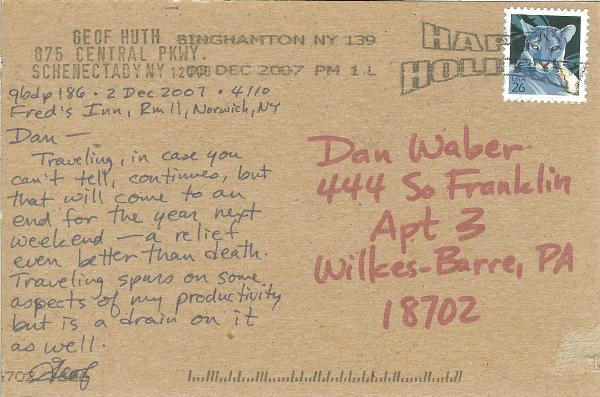 GEOF HUTH
875 CENTRAL PKWY.
SCHENECTADY NY
BINGHAMTON NY 139
DEC 2007 PM 1 L
HAPPY
HOLI
USA
26
qbdp186 · 2 Dec 2007 · 4/10
Fred's Inn, Rm 11, Norwich, NY
Dan —
Traveling, in case you
can't tell, continues, but
that will come to an
end for the year next
weekend — a relief
even better than death.
Traveling spurs on some
aspects of my productivity
but is a drain on it
as well.
Geof
Dan Waber
444 So Franklin
Apt 3
Wilkes-Barre, PA
18702